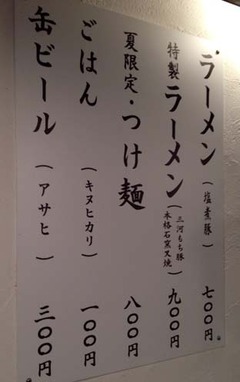 ラーメン（塩煮豚）七〇〇円
特製ラーメン（三河もち豚 本格石窯叉焼）九〇〇円
夏限定・つけ麺 八〇〇円
ごはん（キヌヒカリ）一〇〇円
缶ビール（アサヒ）三〇〇円